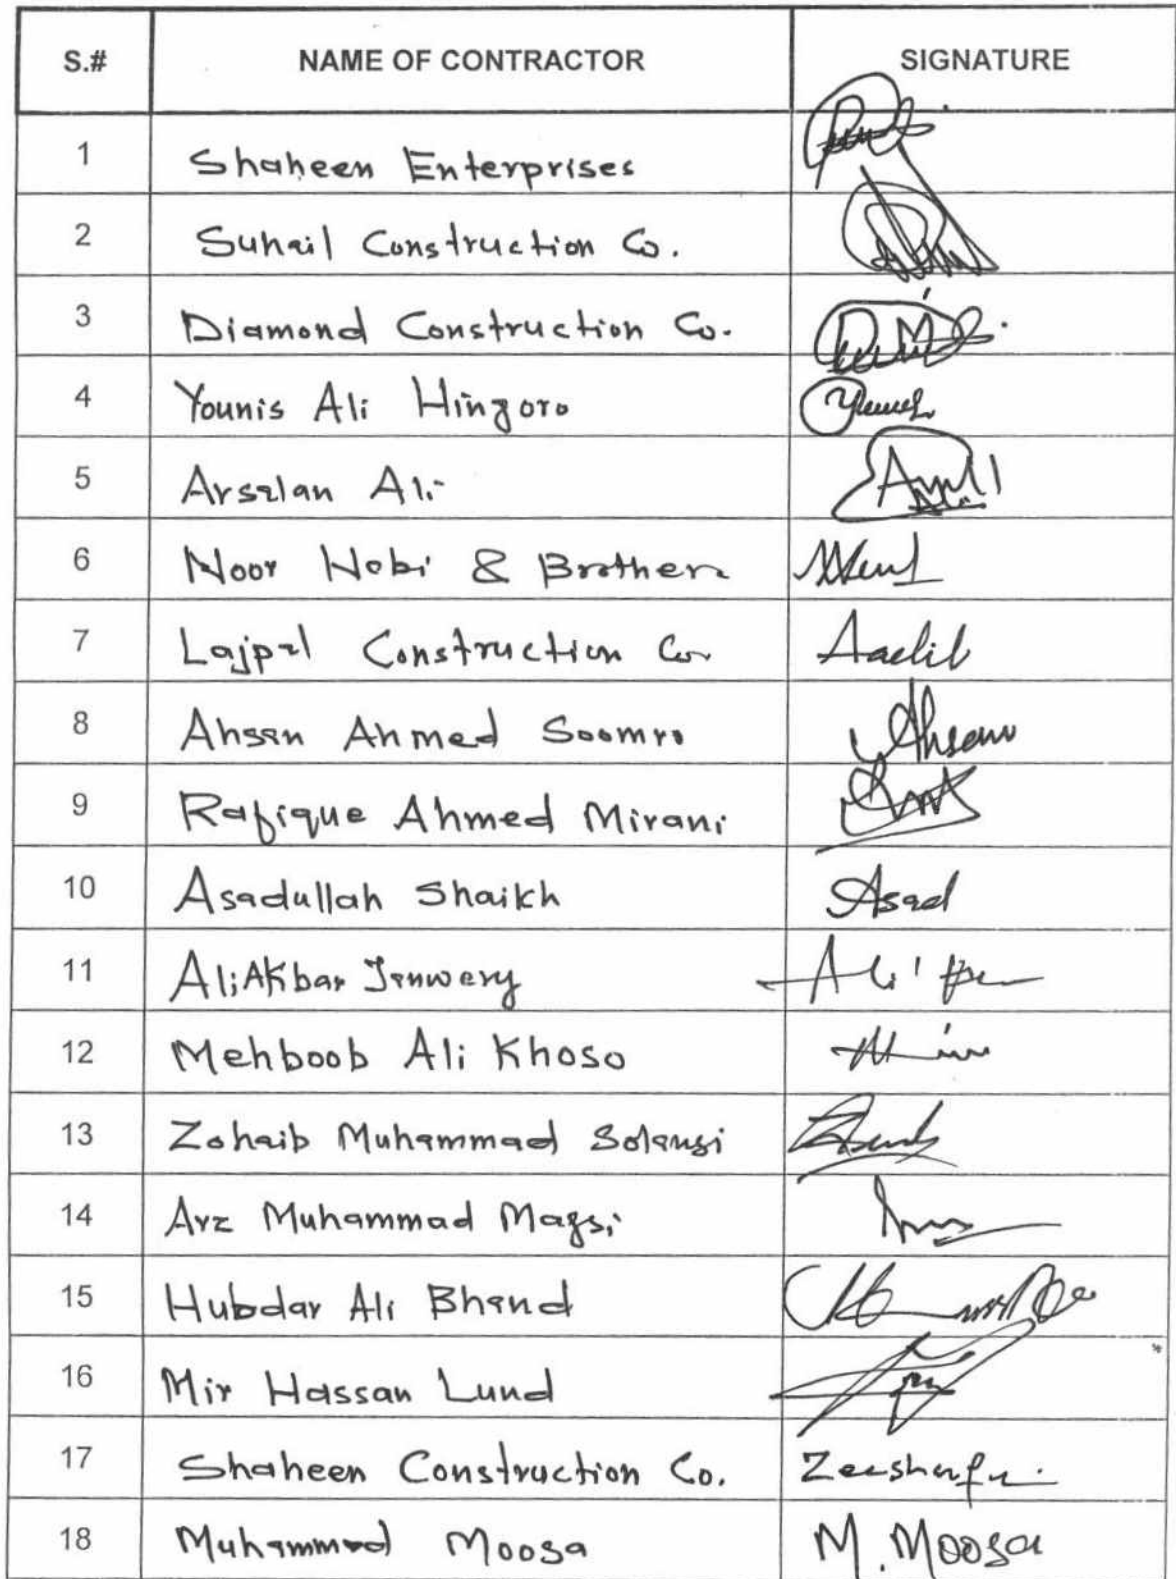 S.# NAME OF CONTRACTOR SIGNATURE
1 Shaheen Enterprises
2 Suhail Construction Co.
3 Diamond Construction Co.
4 Younis Ali Hingoro
5 Arsalan Ali
6 Noor Nabi & Brothers
7 Lajpal Construction Co. Aadil
8 Ahsan Ahmed Soomro Ahsan
9 Rafique Ahmed Mirani
10 Asadullah Shaikh Asad
11 Ali Akbar Ali
12 Mehboob Ali Khoso
13 Zohaib Muhammad Solangi
14 Arz Muhammad Magsi
15 Hubdar Ali Bhand
16 Mir Hassan Lund
17 Shaheen Construction Co.
18 Muhammad Moosa M. Moosa